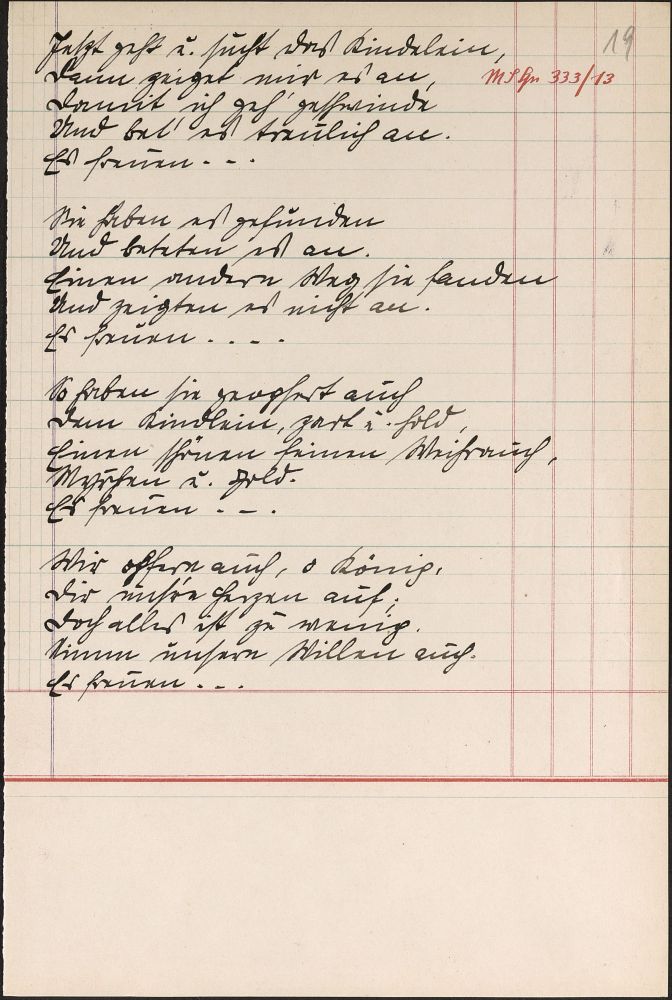 19
Jetzt geht u. sucht das Kindelein,
MS Gr 333/13
Dann zeiget mir es an,
Damit ich geh' geschwinde
Und bet' es treulich an.
Es freuen - - -
Sie haben es gefunden
Und beteten es an.
Einen andern Weg sie fanden
Und zeigten es nicht an.
Es freuen . . . .
So haben sie geopfert auch
Dem Kindlein, zart u. hold,
Einen schönen feinen Weihrauch,
Myrrhen u. Gold.
Es freuen - - .
Wir opfern auch, o König,
Dir unsre Herzen auf;
Doch alles ist zu wenig.
Nimm unsern Willen auch.
Es freuen - - .